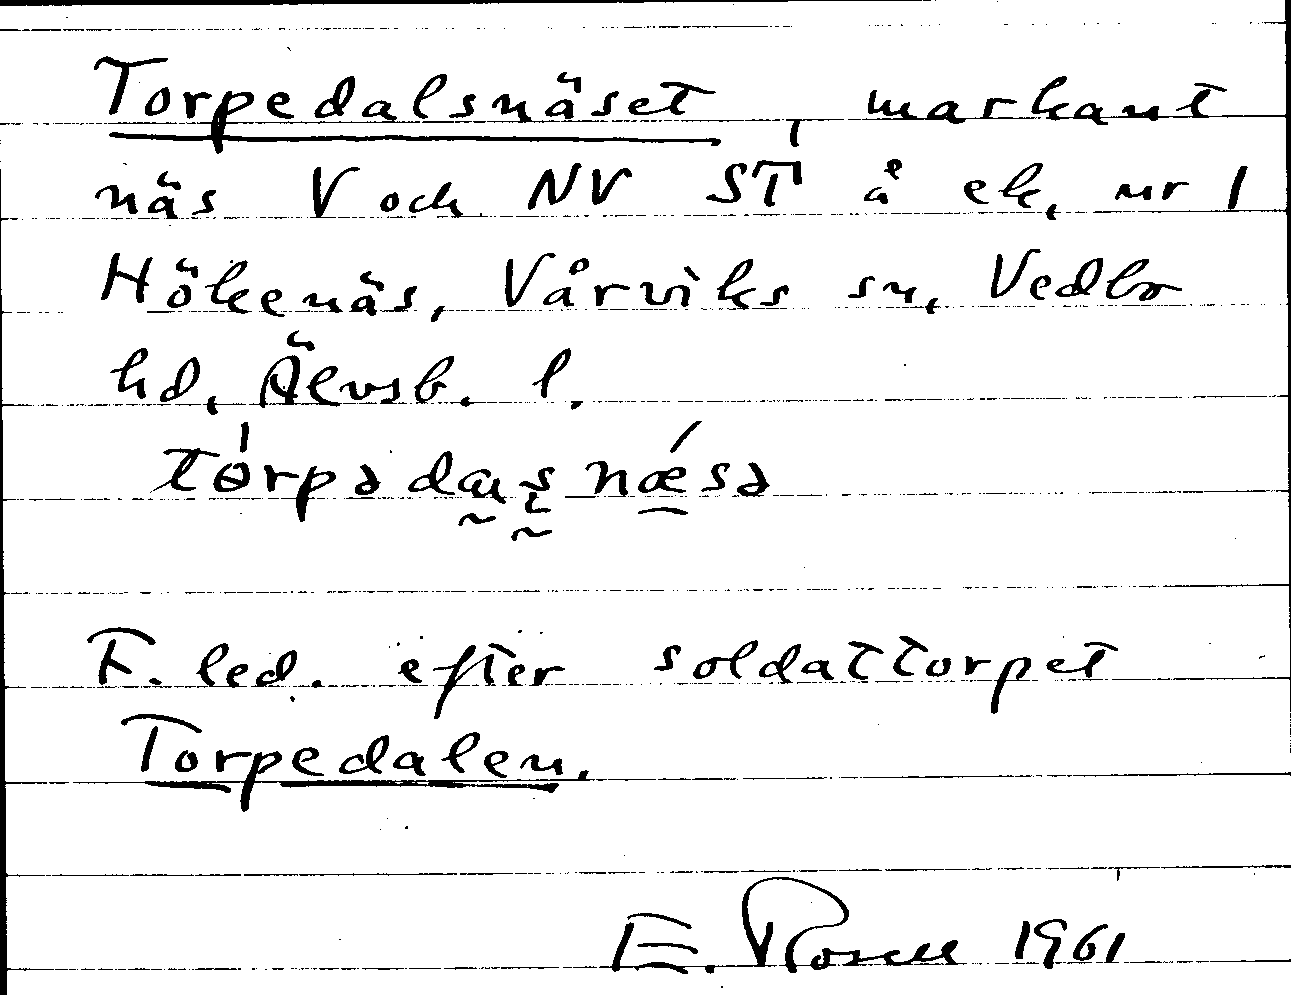 Torpedalsnäset, markant
näs V och NV ST å ek, nr 1
Hökenäs, Vårviks sn, Vedbo
hd, Älvsb. l.
F. led. efter soldattorpet
Torpedalen.
E. 1961